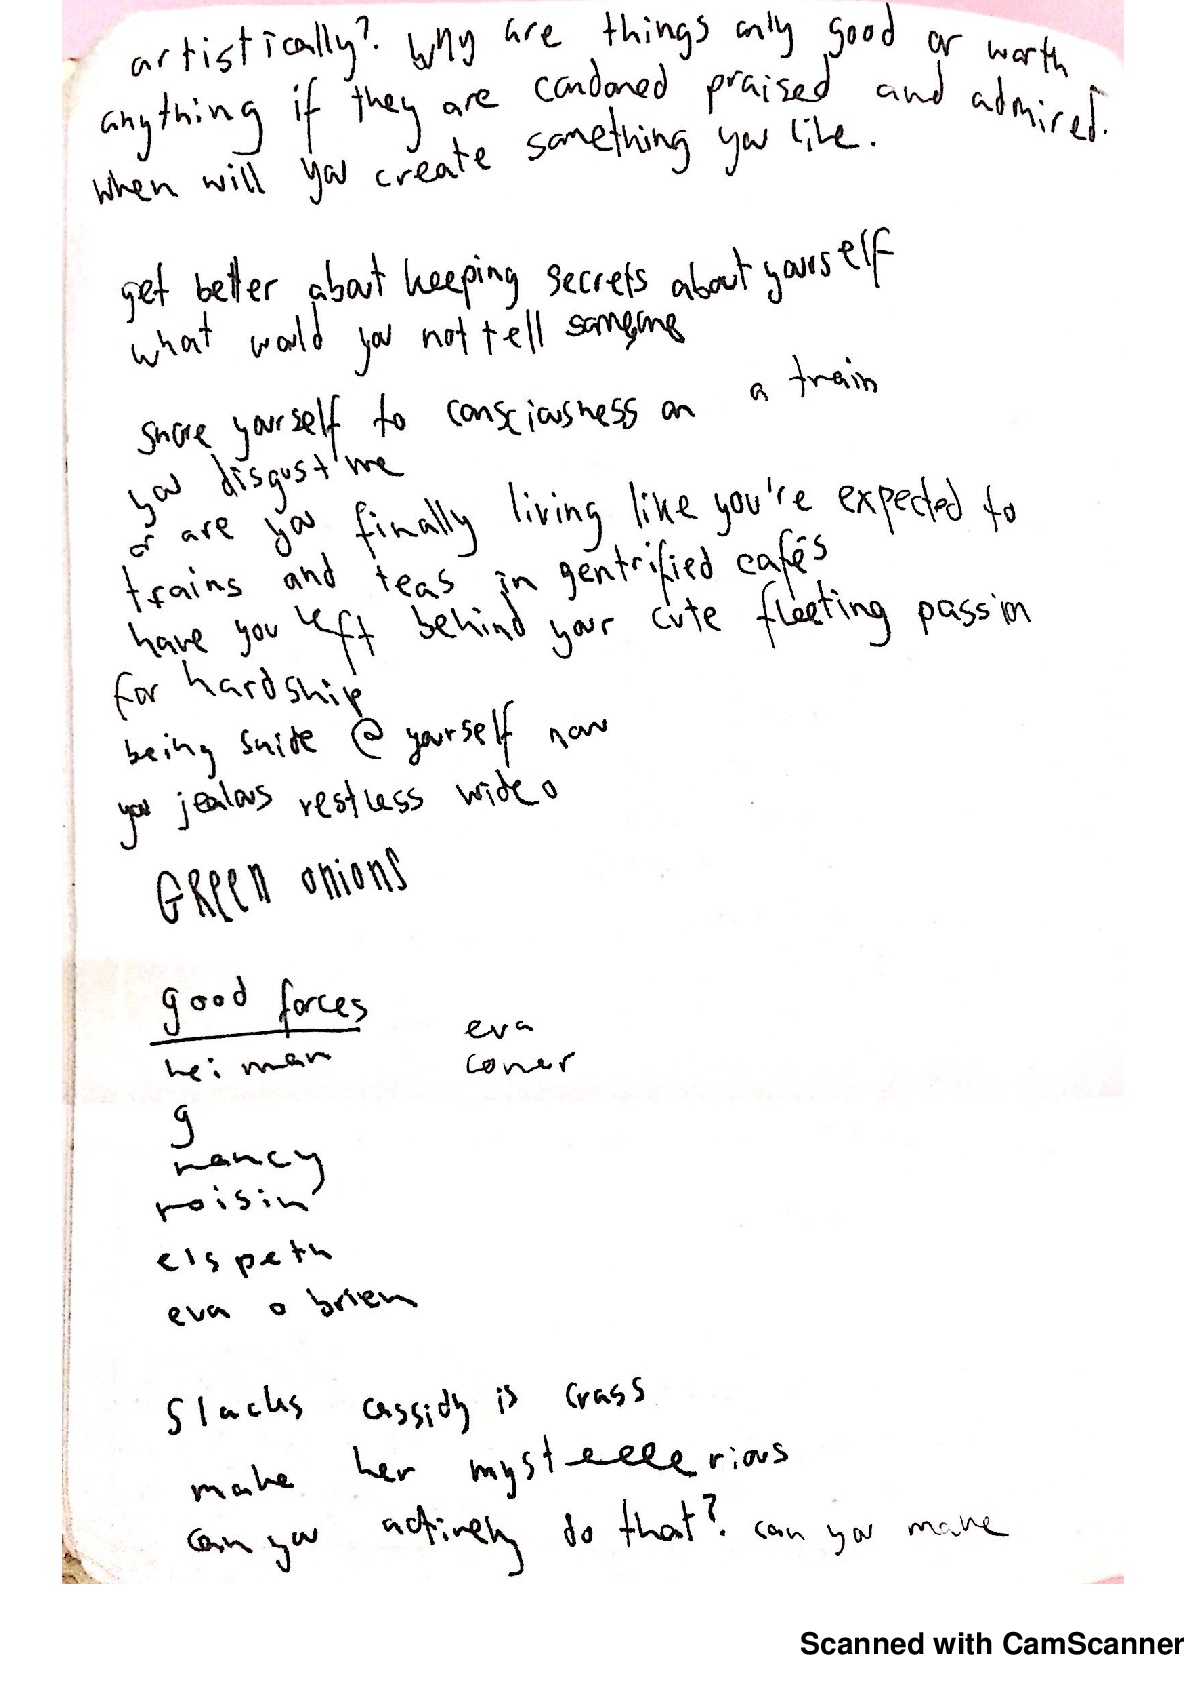 artistically?. Why are things only good or worth
anything if they are condoned praised and admired.
when will you create something you like.
get better about keeping secrets about yourself
what would you not tell someone
snore yourself to consciousness on a train
you disgust me
or are you finally living like you're expected to
trains and teas in gentrified cafés
have you left behind your cute fleeting passion
for hardship
being snide @ yourself now
you jealous restless
GREEN ONIONS
good forces
heiman
eva
coner
g
nancy
roisin
elspeth
eva o brien
Slacks cassidy is crass
make her mysteeeerious
can you actively do that?. can you make
Scanned with CamScanner